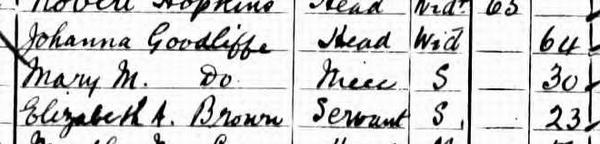 Robert Hopkins Head Widr 65
Johanna Goodliffe Head Wid 64
Mary M. Do Niece S 30
Elizabeth A. Brown Servant S 23